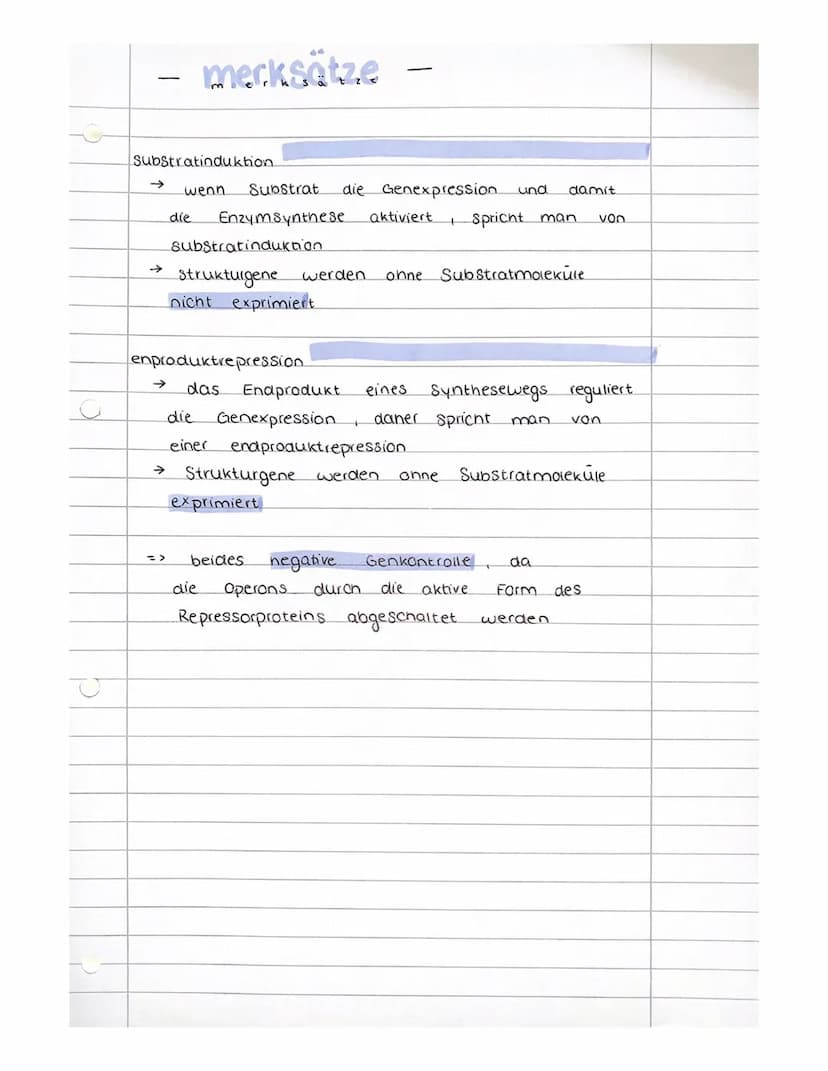 — merksätze —
merksätze
substratinduktion
→ wenn Substrat die Genexpression und damit
die Enzymsynthese aktiviert, spricht man von
substratinduktion
→ strukturgene werden ohne Substratmoleküle
nicht exprimiert
enproduktrepression
→ das Endprodukt eines Synthesewegs reguliert
die Genexpression, daher spricht man von
einer endproduktrepression
→ Strukturgene werden ohne Substratmoleküle
exprimiert
=> beides negative Genkontrolle, da
die Operons durch die aktive Form des
Repressorproteins abgeschaltet werden